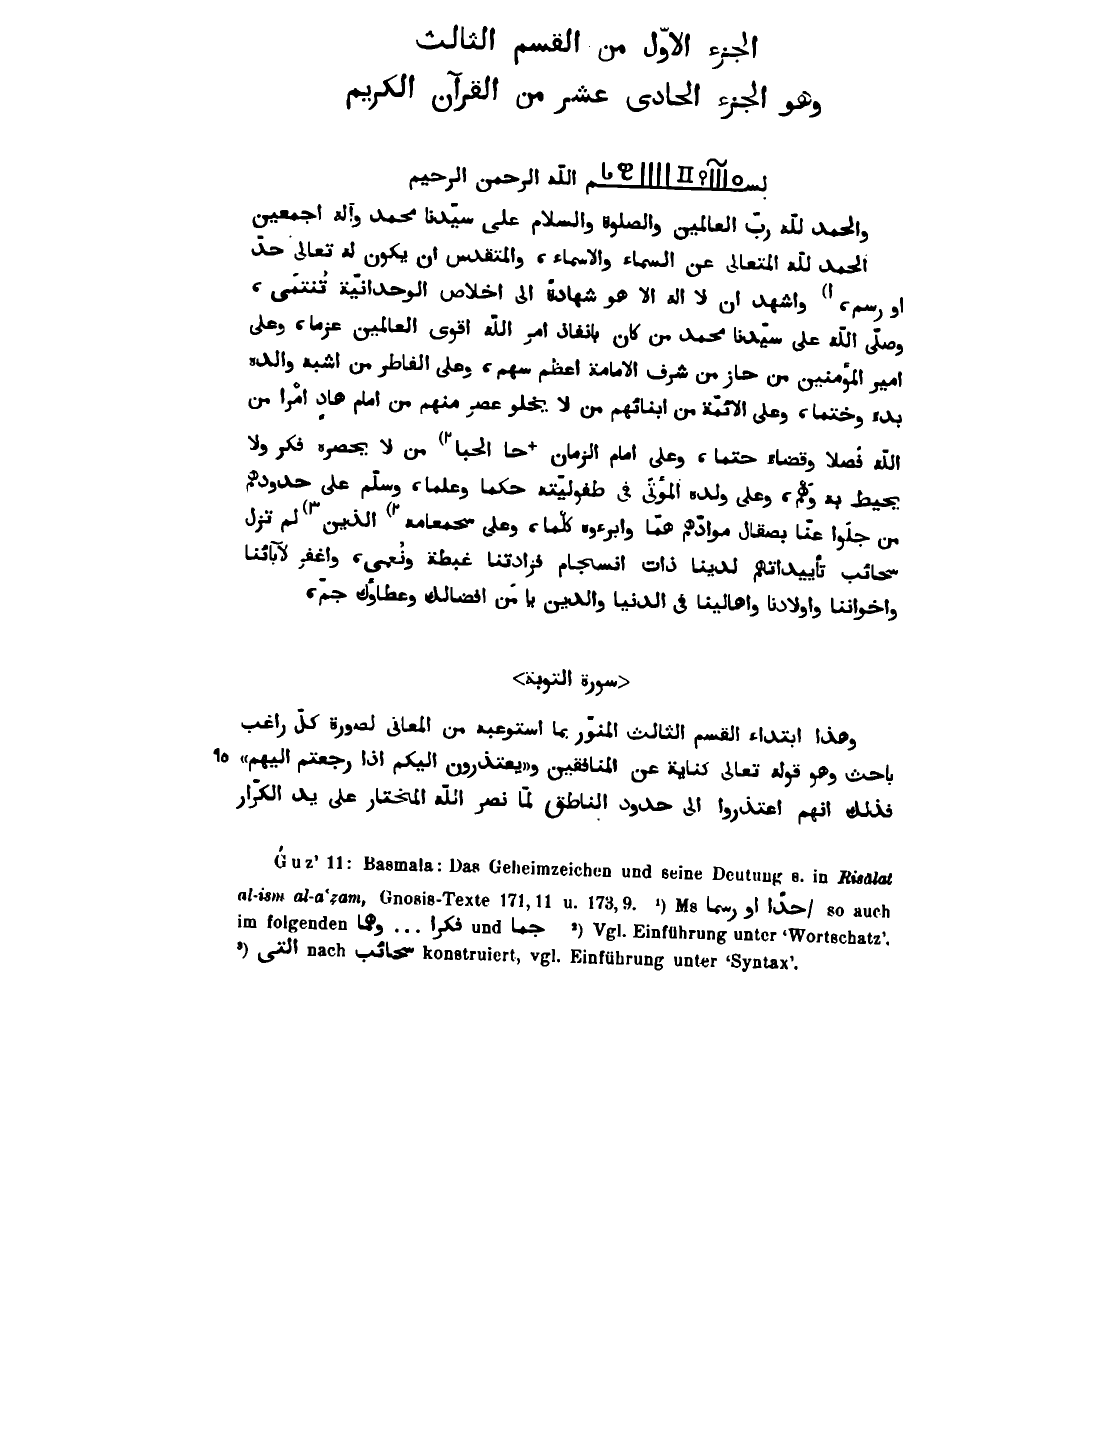 الجزء الاوّل من القسم الثالث
وهو الجزء الحادى عشر من القرآن الكريم
بسم اللّه الرحمن الرحيم
والحمد للّه ربّ العالمين والصلوة والسلام على سيّدنا محمد وآله اجمعين
الحمد للّه المتعالى عن السماء والاسماء، والمتقدس ان يكون له تعالى حدّ
او رسم، ١) واشهد ان لا اله الا هو شهادةً الى اخلاص الوحدانيّة تُنتمَى،
وصلّى اللّه على سيّدنا محمد من كان بانفاذ امر اللّه اقوى العالمين عزما، وعلى
امير المؤمنين من حاز من شرف الامامة اعظم سهم، وعلى الفاطر من اشبه والده
بدء وختما، وعلى الائمّة من ابنائهم من لا يخلو عصر منهم من امام هادٍ امْرا من
اللّه فَصلا وقضاء حتما، وعلى امام الزمان +حا الحبا٢) من لا يحصره فكر ولا
يحيط به وَهْم، وعلى ولده المؤتَى فى طفوليّته حكما وعلما، وسلّم على حدودهم
من جلَوا عنّا بصقال موادّهم همّا وابرءوه كلّما، وعلى ٢) الذين٣) لم تزل
سحائب تأييداتهم لدينا ذات انسجام فزادتنا غبطة ونُعمى، واغفر لآبائنا
واخواننا واولادنا واهالينا فى الدنيا والدين يا مَن افضالك وعطاؤك جمّ،
<سورة التوبة>
وهذا ابتداء القسم الثالث المنوّر بما استوعبه من المعانى لصورة كلّ راغب
باحث وهو قوله تعالى كناية عن المنافقين و«يعتذرون اليكم اذا رجعتم اليهم» ٩٥
فذلك انهم اعتذروا الى حدود الناطق لمّا نصر اللّه المختار على يد الكرّار
Ǵuz’ 11: Basmala: Das Geheimzeichen und seine Deutung s. in Risālat
al-ism al-aʿẓam, Gnosis-Texte 171, 11 u. 173, 9. ¹) Ms حدًّا او رسما/ so auch
im folgenden وهما ... فكرا und جما ²) Vgl. Einführung unter ‘Wortschatz’.
³) التى nach سحائب konstruiert, vgl. Einführung unter ‘Syntax’.